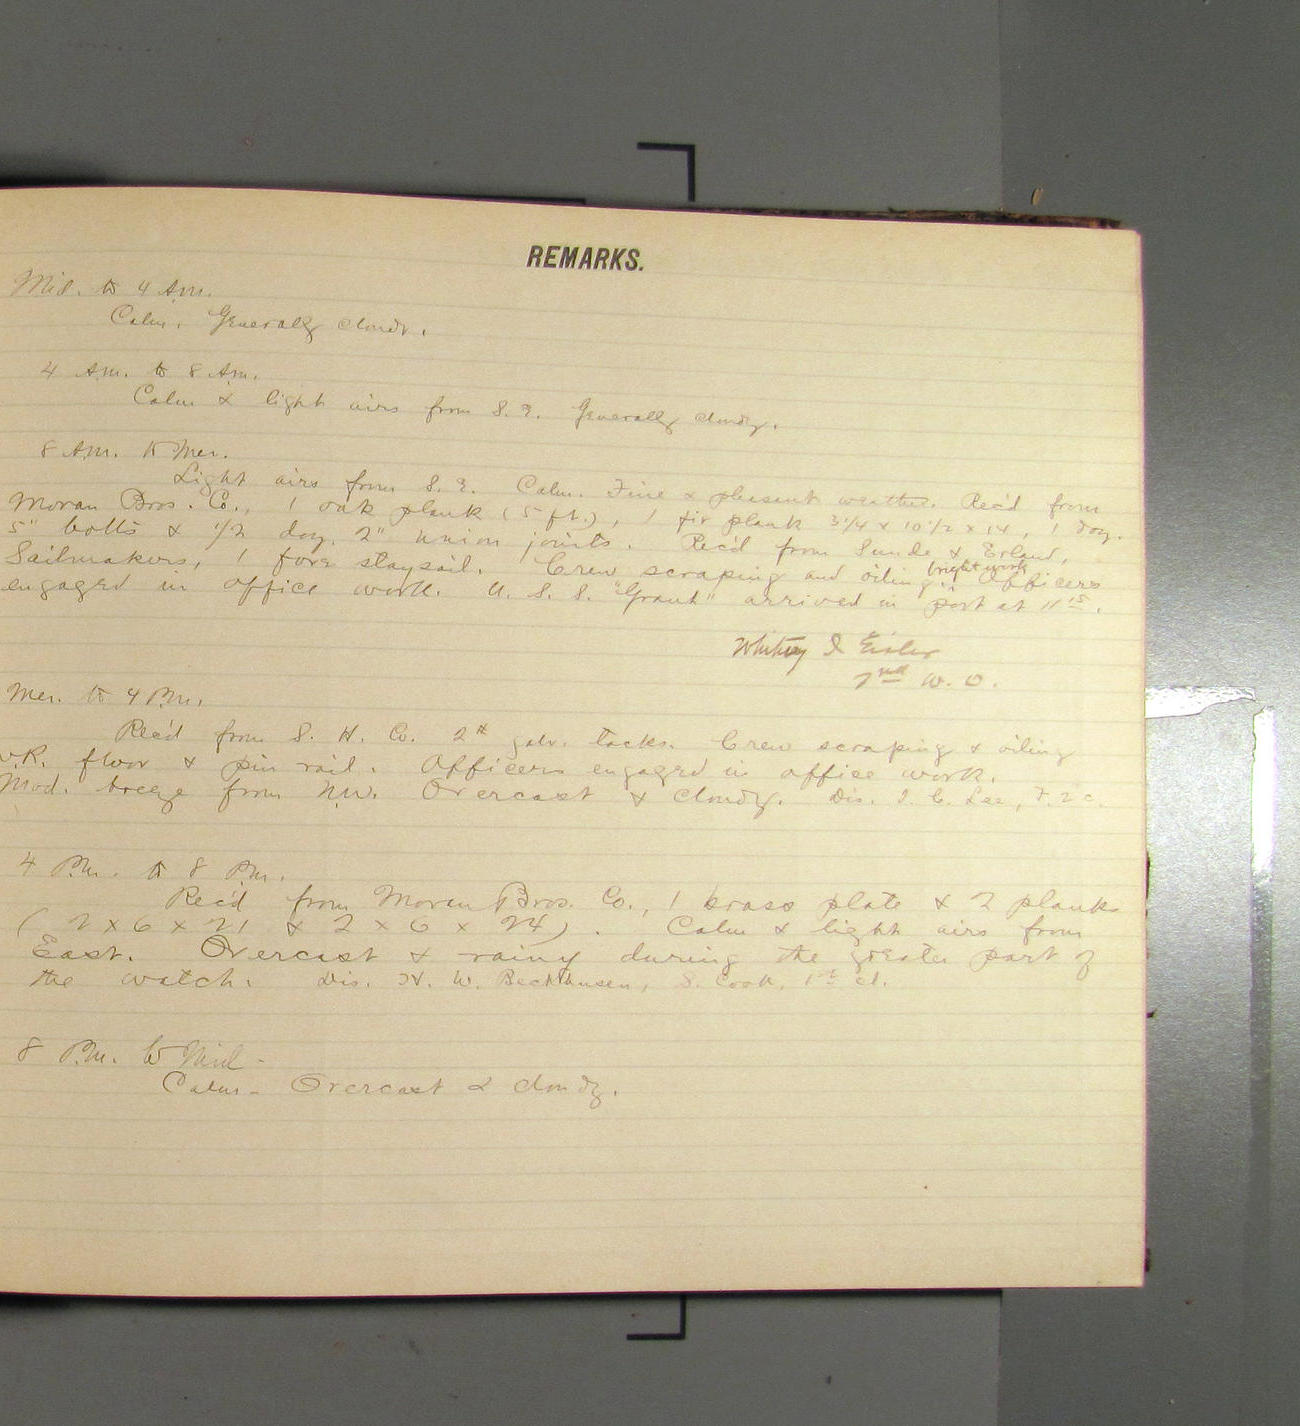 REMARKS.
Mid. to 4 Am.
Calm. Generally cloudy.
4 Am. to 8 Am.
Calm & light airs from S. E. Generally cloudy.
8 Am. to Mer.
Light airs from S. E. Calm. Fine & pleasent weather. Rec'd from
Moran Bros. Co., 1 oak plank (5 ft.), 1 fir plank 3 1/4 x 10 1/2 x 14, 1 doz.
5" bolts & 1/2 doz. 2" union joints. Rec'd from Sunde & Erland,
Sailmakers, 1 fore staysail. Crew scraping and oiling bright work. Officers
engaged in office work. U. S. S. "Grant" arrived in port at 11 15.
Whitney I Eisler
2nd W. O.
Mer. to 4 Pm.
Rec'd from S. H. Co. 2# galv. tacks. Crew scraping & oiling
W.R. floor & pin rail. Officers engaged in office work.
Mod. breeze from NW. Overcast & cloudy. Dis. I. C. Lee, F. 2 c.
4 Pm. to 8 Pm.
Rec'd from Moran Bros. Co., 1 brass plate & 2 planks
(2 x 6 x 21 & 2 x 6 x 24). Calm & light airs from
East. Overcast & rainy during the greater part of
the watch. Dis. H. W. Beckhusen, S. Cook, 1st cl.
8 Pm. to Mid -
Calm - Overcast & cloudy.